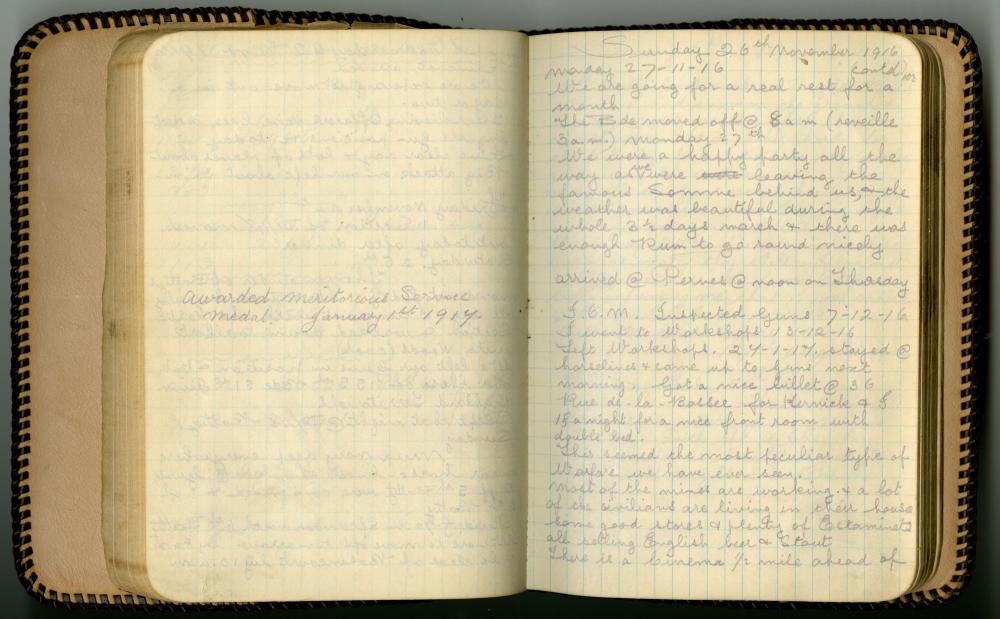 Awarded Meritorious Service
Medal January 1st 1917.
Sunday 26th November 1916
Monday 27-11-16 (contd)
We are going for a real rest for a
month
The Bde moved off @ 8 a m (reveille
3 a.m.) Monday 27th
We were a happy party all the
way as we were leaving the
famous Somme behind us, & the
weather was beautiful during the
whole 3½ days march & there was
enough Rum to go round nicely
arrived @ Pernes @ noon on Thursday
I.O.M. Inspected Guns 7-12-16
I went to Workshops 13-12-16
Left Workshops. 24-1-17. stayed @
horselines & came up to Guns next
morning. Got a nice billet @ 36
Rue de-la-Bassee for Kernick & I
1f a night for a nice front room with
double bed.
This seemed the most peculiar type of
Warfare we have ever seen.
Most of the mines are working. & a lot
of the civilians are living in their house
Some good stores & plenty of Estaminets
all selling English beer & Stout
There is a Cinema ½ mile ahead of